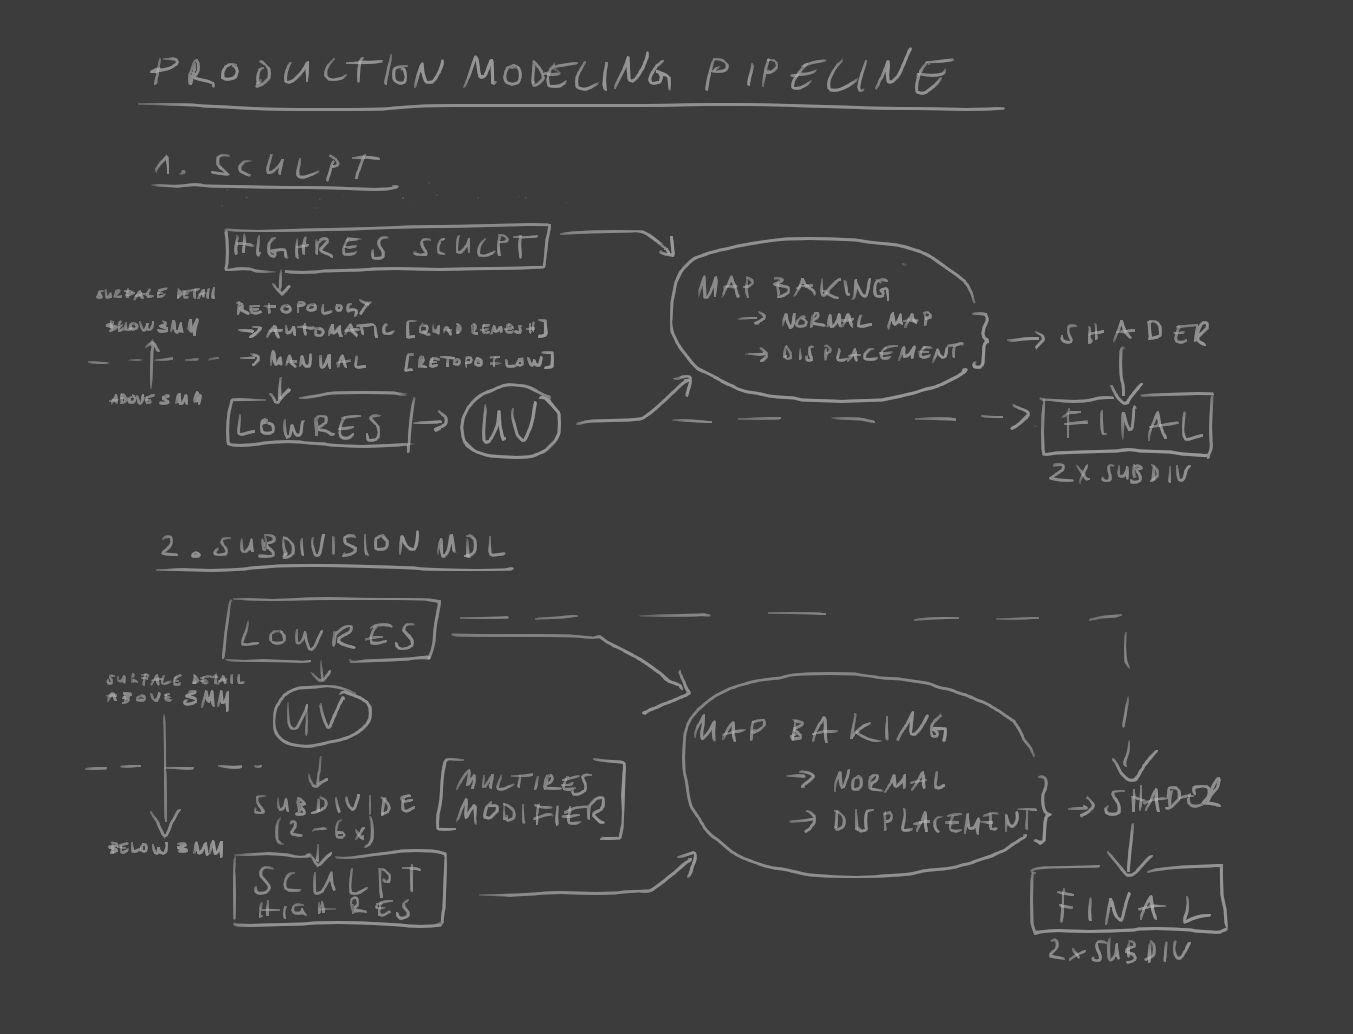 PRODUCTION MODELING PIPELINE
1. SCULPT
HIGHRES SCULPT
SURFACE DETAIL
BELOW 3MM
ABOVE 3MM
RETOPOLOGY
→ AUTOMATIC [QUAD REMESH]
→ MANUAL [RETOPOFLOW]
LOWRES
UV
MAP BAKING
→ NORMAL MAP
→ DISPLACEMENT
SHADER
FINAL
2X SUBDIV
2. SUBDIVISION MDL
LOWRES
SURFACE DETAIL
ABOVE 3MM
BELOW 3MM
UV
SUBDIVIDE
(2-6x)
[MULTIRES
MODIFIER]
SCULPT
HIGHRES
MAP BAKING
→ NORMAL
→ DISPLACEMENT
SHADER
FINAL
2xSUBDIV